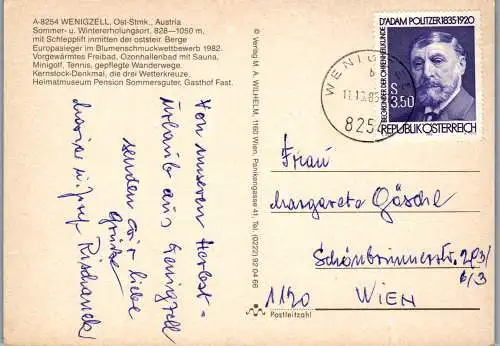 A-8254 WENIGZELL, Ost-Stmk., Austria
Sommer- u. Wintererholungsort, 828—1050 m,
mit Schlepplift inmitten der oststeir. Berge
Europasieger im Blumenschmuckwettbewerb 1982.
Vorgewärmtes Freibad, Ozonhallenbad mit Sauna,
Minigolf, Tennis, gepflegte Wanderwege.
Kernstock-Denkmal, die drei Wetterkreuze,
Heimatmuseum Pension Sommersguter, Gasthof Fast.
Von unseren Herbst-
urlaub aus Wenigzell
senden wir liebe
Grüße
u. Josef
© Verlag M. A. WILHELM, 1160 Wien, Panikengasse 41, Tel. (0222) 92 04 66
D'ADAM POLITZER 1835-1920
BEGRÜNDER DER OHRENHEILKUNDE
S 3.50
REPUBLIK ÖSTERREICH
WENIG
b
8254
Frau
Margarete Göschl
Schönbrunnerstr. 293/
6/3
1120 WIEN
Postleitzahl